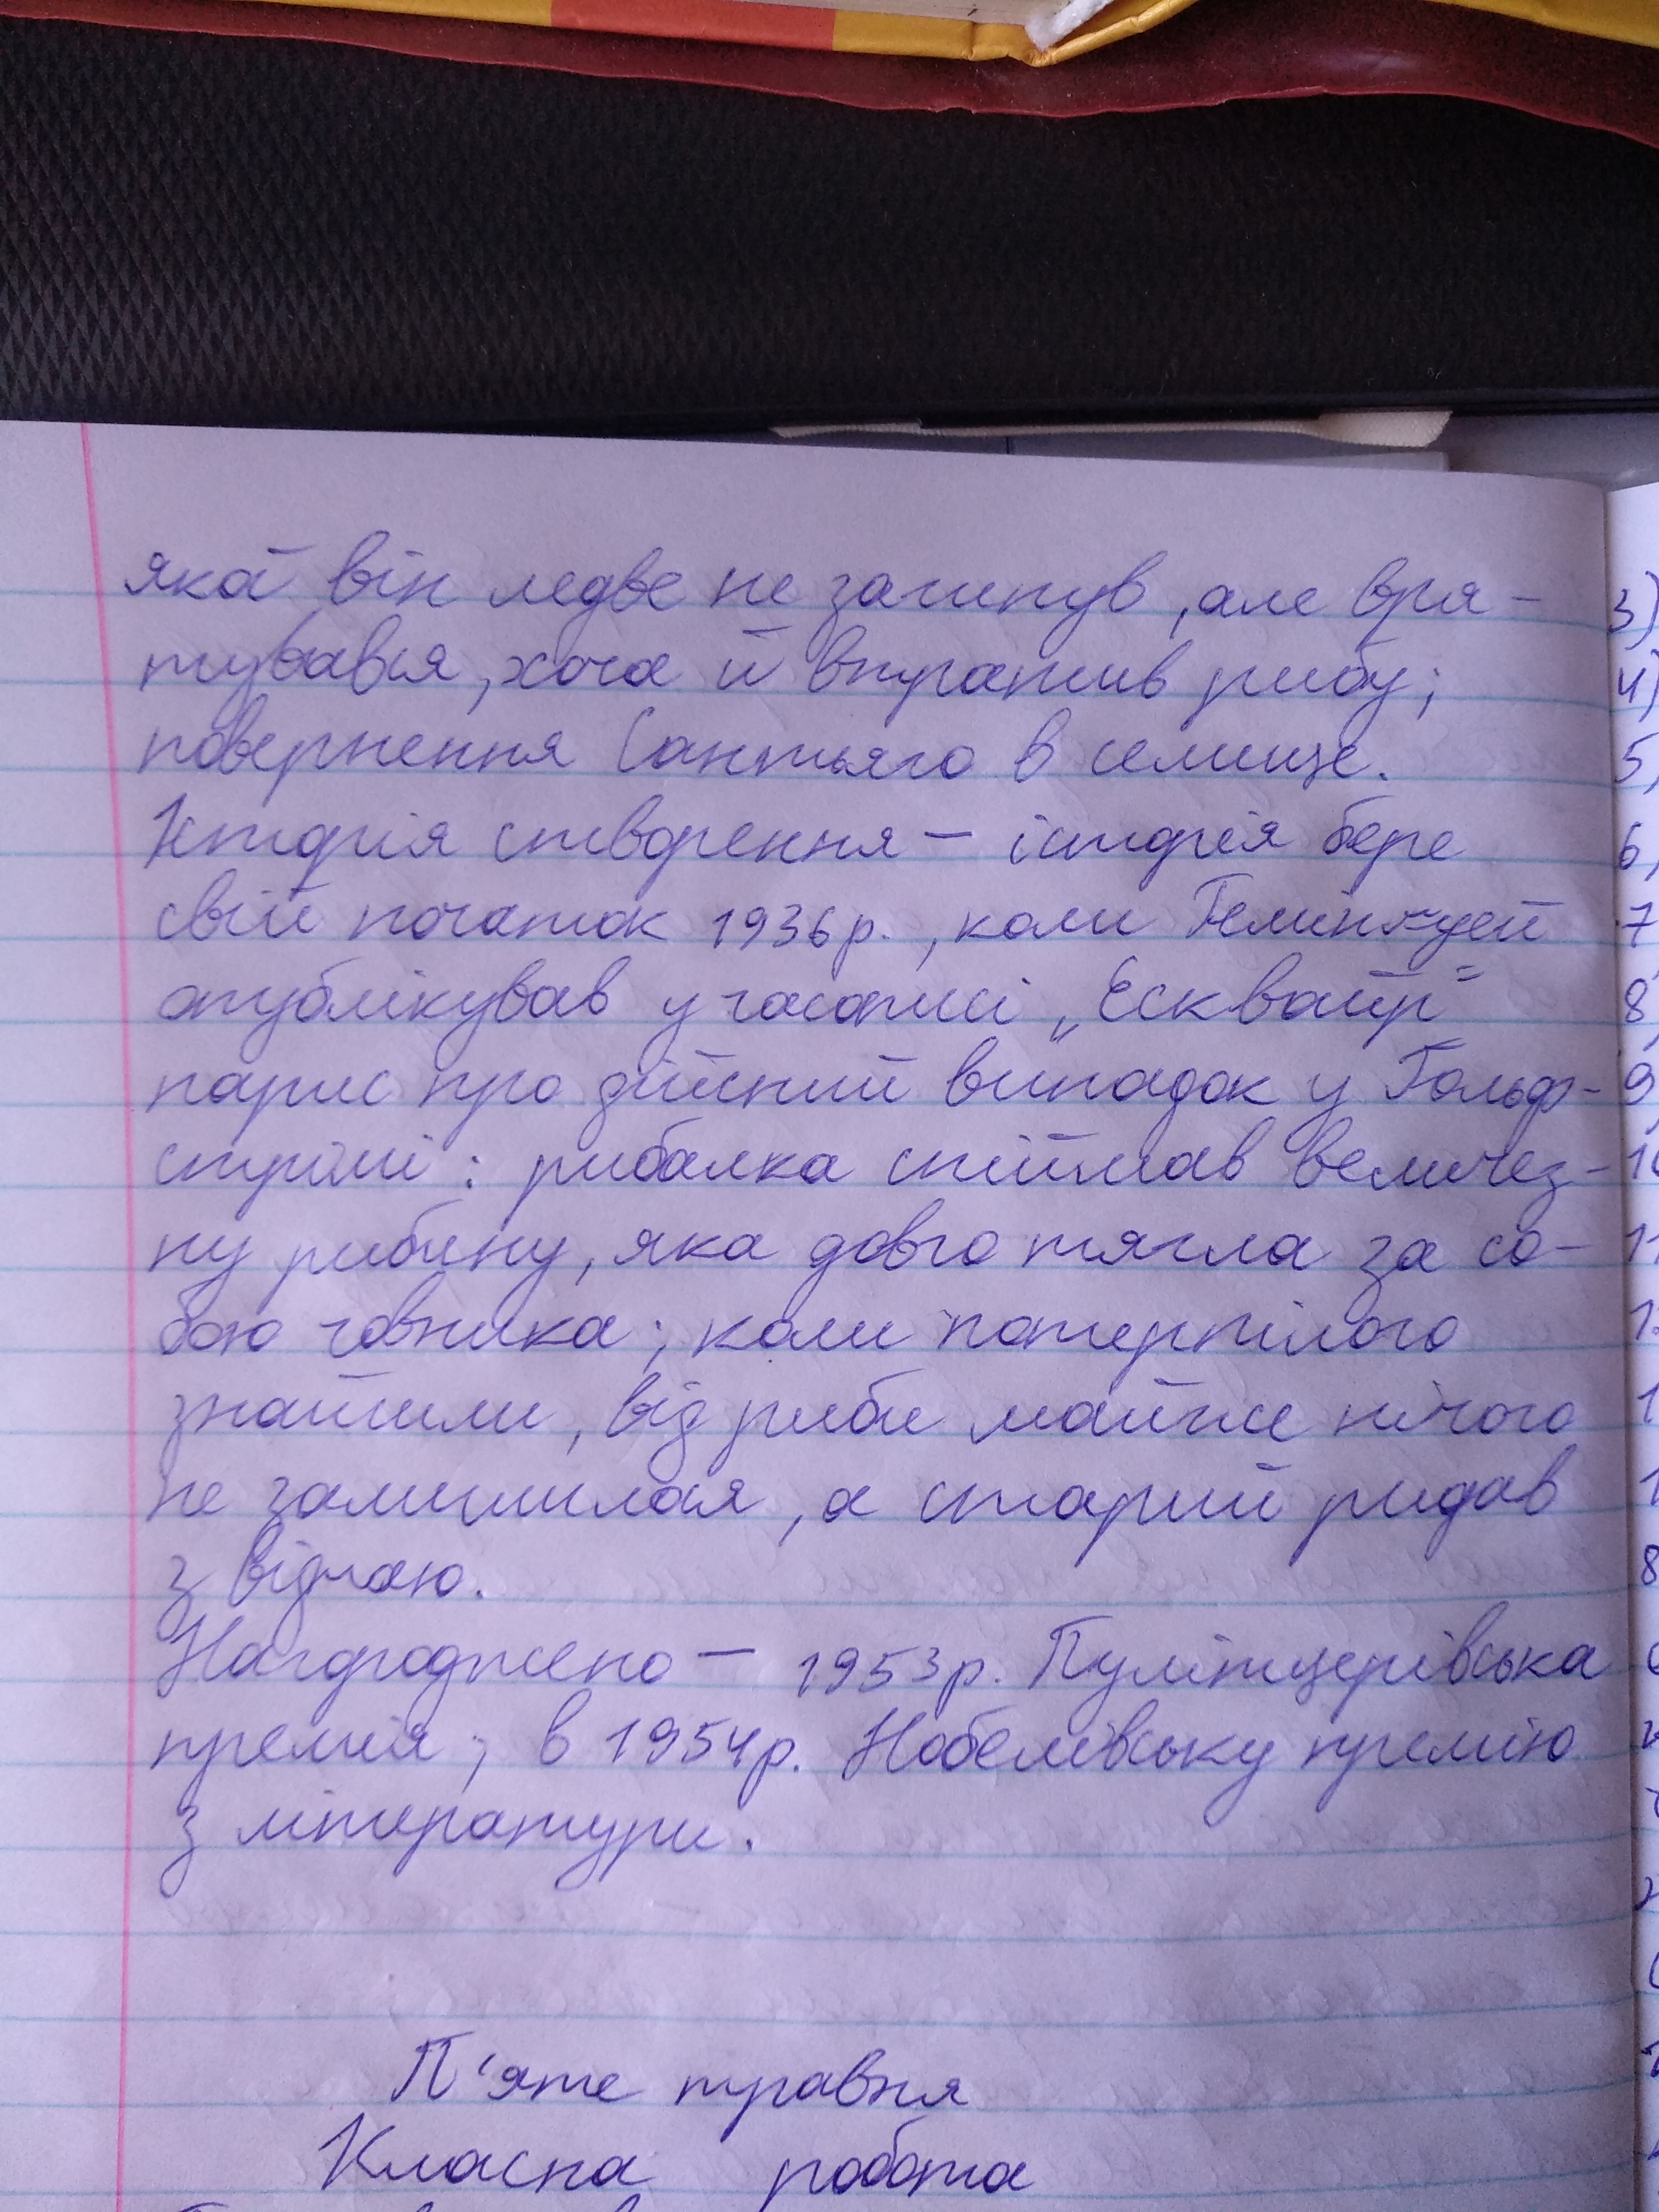 якої він ледве не загинув, але вря-
тувався, хоча й втратив рибу;
повернення Сантьяго в селище.
Історія створення – історія бере
свій початок 1936р., коли Гемінґуей
опублікував у часописі „Есквайр"
нарис про дійсний випадок у Гольф-
стрімі: рибалка спіймав величез-
ну рибину, яка довго тягла за со-
бою човника; коли потерпілого
знайшли, від риби майже нічого
не залишилося, а старий ридав
з відчаю.
Нагороджено – 1953р. Пулітцерівська
премія; в 1954р. Нобелівську премію
з літератури.
П'яте травня
Класна робота
3)
4)
5)
6)
7
8
9